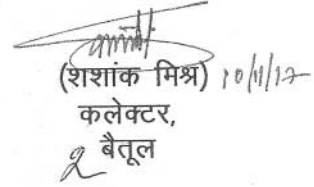 (शशांक मिश्र) 10/11/17
कलेक्टर,
बैतूल
2